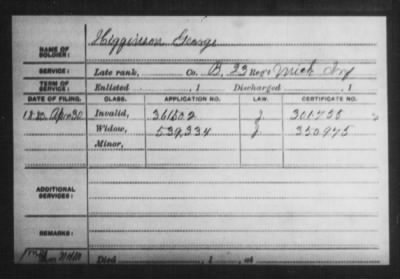 NAME OF SOLDIER: Higginson George
SERVICE: Late rank, Co. B, 23 Reg't Mich Inf
TERM OF SERVICE: Enlisted , 1 Discharged , 1
DATE OF FILING. CLASS. APPLICATION NO. LAW. CERTIFICATE NO.
1880 Apr 30 Invalid, 361502 J. 301755
Widow, 539,334 J 350975
Minor,
ADDITIONAL SERVICES:
REMARKS:
Died , 1 , at